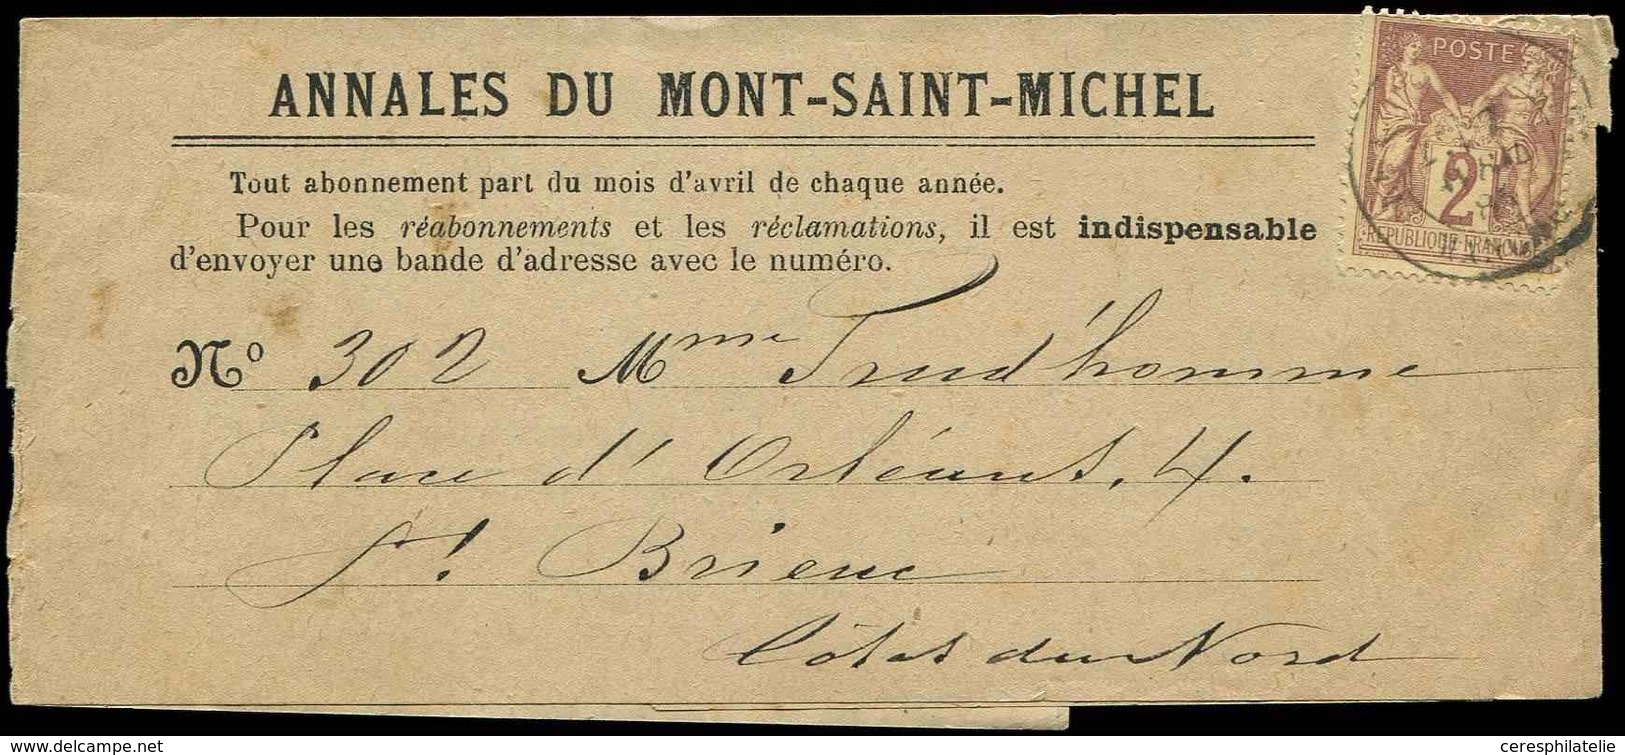 ANNALES DU MONT-SAINT-MICHEL
POSTE
2
REPUBLIQUE FRANÇAISE
Tout abonnement part du mois d'avril de chaque année.
Pour les réabonnements et les réclamations, il est indispensable
d'envoyer une bande d'adresse avec le numéro.
N° 302 Mme Prud'homme
Place d'Orléans, 4.
St Brieuc
Côtes du Nord
www.delcampe.net
ceresphilatelie